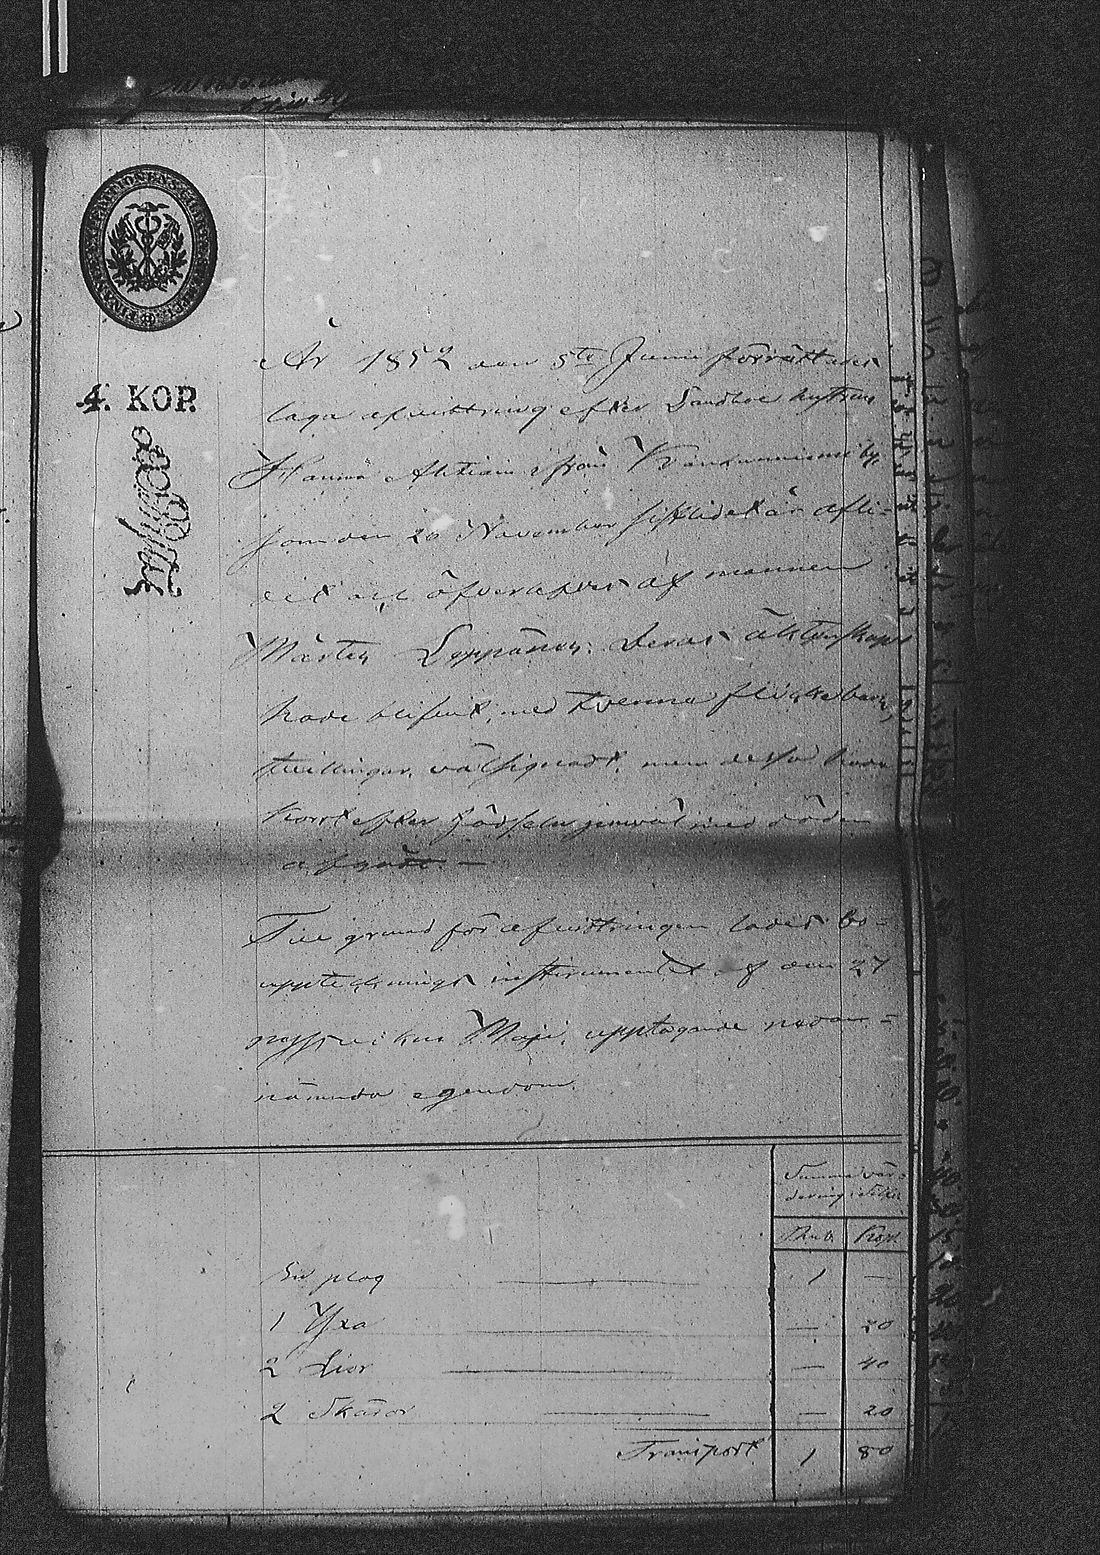 4. KOP.
År 1852 den 5te Junii förrättades
laga afvittring efter Landboe hustrun
Hanna Ahtiain från by,
som den 20 November sistlidet år afli-
dit och öfverlefves af mannen
Mårten Leppänen. Deras äktenskap
hade blifvit, med tvenne flickebarn,
tvillingar, välsignadt, men dessa hade
kort efter födseln jemväl med döden
afgått. —
Till grund för afvittringen lades bo-
upptecknings instrumentet af den 27
nyssvikne Maji, upptagande nedan-
nämnda egendom.
Summa vär-
dering Silfver
Rub. Kop.
En plog 1 —
1 Yxa — 20
2 Liar — 40
2 Skäror — 20
Transport 1 80